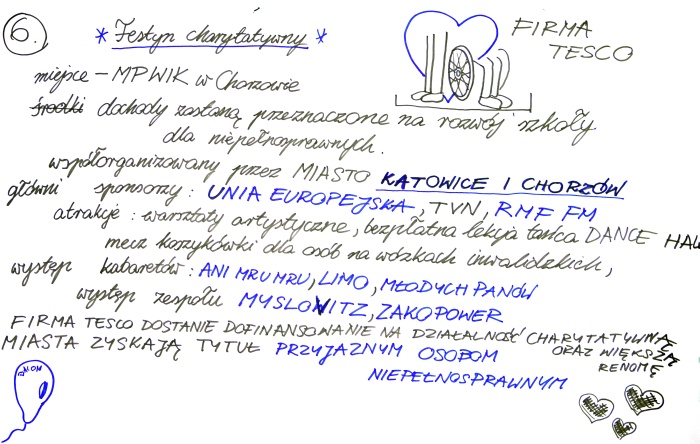 6.
* Festyn charytatywny *
FIRMA
TESCO
miejsce – MPWIK w Chorzowie
środki dochody zostaną przeznaczone na rozwój szkoły
dla niepełnosprawnych.
współorganizowany przez MIASTO KATOWICE I CHORZÓW
główni sponsorzy: UNIA EUROPEJSKA, TVN, RMF FM
atrakcje: warsztaty artystyczne, bezpłatna lekcja tańca DANCE HALL
mecz koszykówki dla osób na wózkach inwalidzkich,
występ kabaretów: ANI MRU MRU, LIMO, MŁODYCH PANÓW
występ zespołu MYSLOVITZ, ZAKOPOWER
FIRMA TESCO DOSTANIE DOFINANSOWANIE NA DZIAŁALNOŚĆ CHARYTATYWNĄ
ORAZ WIĘKSZYM
RENOMĘ
MIASTA ZYSKAJĄ TYTUŁ PRZYJAZNYM OSOBOM
NIEPEŁNOSPRAWNYM